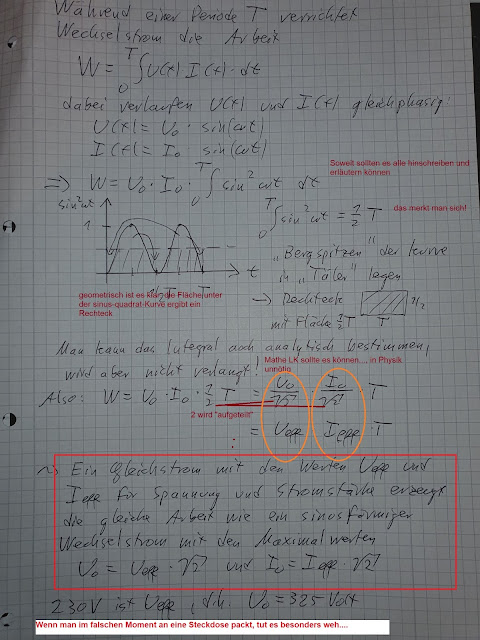 Während einer Periode T verrichtet
Wechselstrom die Arbeit
W = ₀∫ᵀ U(t) I(t) · dt
dabei verlaufen U(t) und I(t) gleichphasig:
U(t) = U₀ · sin(ωt)
I(t) = I₀ sin(ωt)
Soweit sollten es alle hinschreiben und
erläutern können
=> W = U₀ · I₀ · ₀∫ᵀ sin²ωt dt
sin²ωt
1
t
½T T
₀∫ᵀ sin²ωt = ½ T
das merkt man sich!
"Bergspitzen" der Kurve
in "Täler" legen
geometrisch ist es klar, die Fläche unter
der sinus-quadrat-Kurve ergibt ein
Rechteck
→ Rechteck 1/2
mit Fläche ½T T
Man kann das Integral auch analytisch bestimmen,
wird aber nicht verlangt!
Mathe LK sollte es können.... in Physik
unnötig
Also: W = U₀ · I₀ · ½ T = U₀/√2 I₀/√2 T
2 wird "aufgeteilt"
= Ueff Ieff · T
Ein Gleichstrom mit den Werten Ueff und
Ieff für Spannung und Stromstärke erzeugt
die gleiche Arbeit wie ein sinusförmiger
Wechselstrom mit den Maximalwerten
U₀ = Ueff · √2 und I₀ = Ieff · √2
230V ist Ueff, d.h. U₀ = 325 Volt
Wenn man im falschen Moment an eine Steckdose packt, tut es besonders weh....